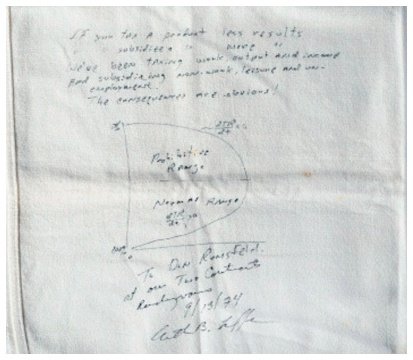 If you tax a product less results
" " subsidize " " more "
We've been taxing work, output and income
and subsidizing non-work, leisure and un-
employment.
The consequences are obvious!
Prohibitive
Range
Normal Range
To Don Rumsfeld
at our Two Continents
Rendezvous
9/13/74
Arthur B. Laffer